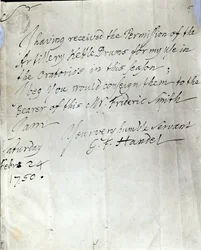 I having received the Permission of the
Artillery Kettle Drums for my use in
the Oratorio's in this Season
I beg you would consign them to the
Bearer of this Mr Frideric Smith
I am
Your very humble Servant
G. F. Handel
Saturday
Febr: 24
1750.